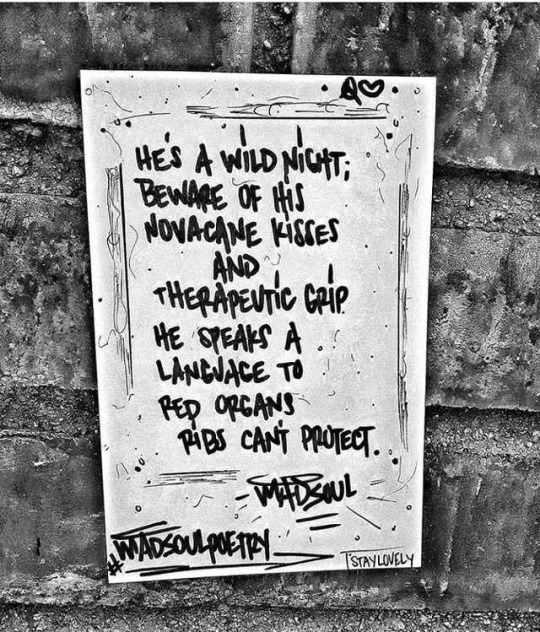 Q♡
HE'S A WILD NIGHT;
BEWARE OF HIS
NOVACANE KISSES
AND
THERAPEUTIC GRIP.
HE SPEAKS A
LANGUAGE TO
RED ORGANS
RIBS CAN'T PROTECT.
- MADSOUL
#MADSOULPOETRY
T'STAYLOVELY